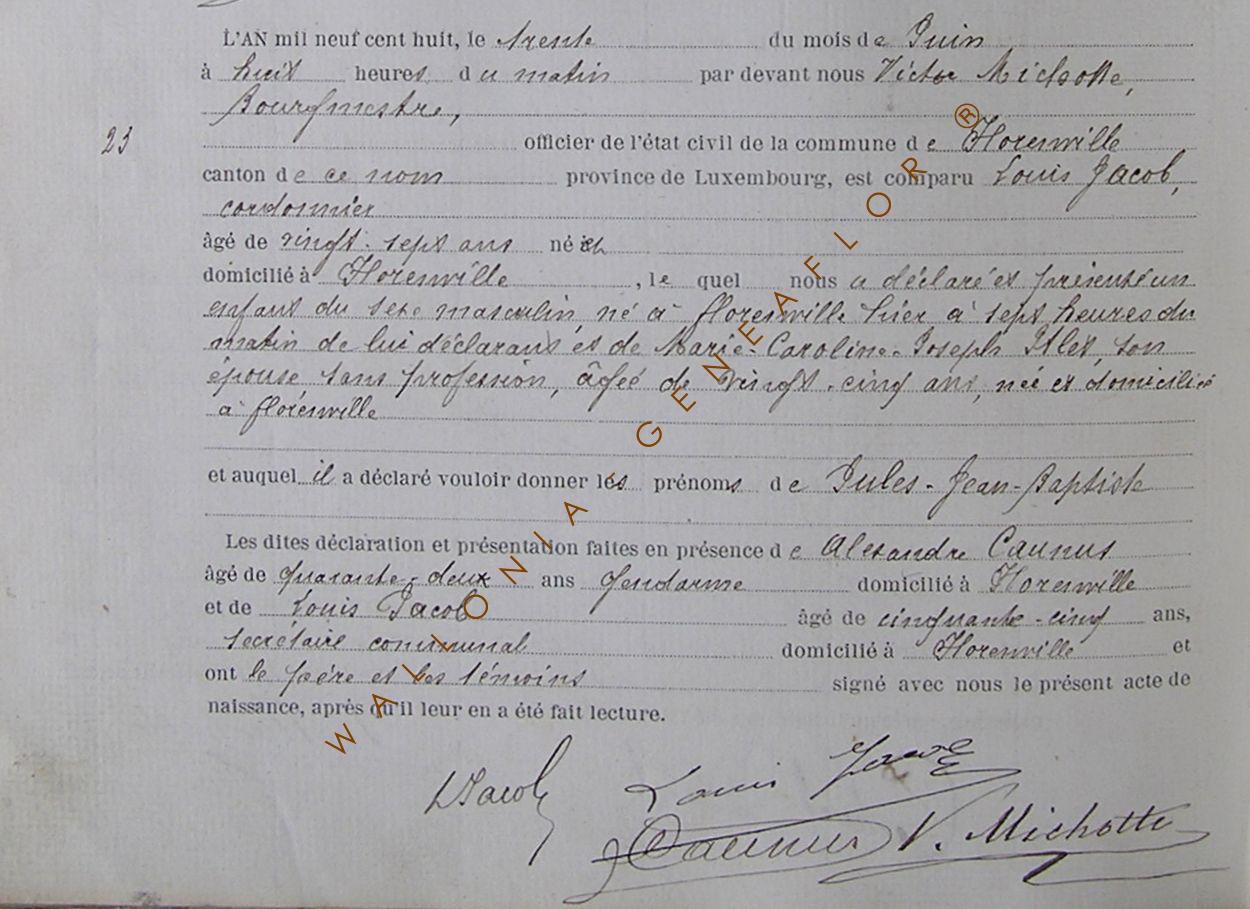 L'AN mil neuf cent huit, le trente du mois de Juin
à huit heures du matin par devant nous Victor Michotte,
Bourgmestre,
23 officier de l'état civil de la commune de Florenville
canton de ce nom province de Luxembourg, est comparu Louis Jacob,
cordonnier
âgé de vingt-sept ans né et
domicilié à Florenville, lequel nous a déclaré et présenté un
enfant du sexe masculin, né à florenville hier à sept heures du
matin de lui déclarant et de Marie-Caroline-Joseph, son
épouse sans profession, âgée de vingt-cinq ans, née et domiciliée
à florenville
et auquel il a déclaré vouloir donner les prénoms de Jules-Jean-Baptiste
Les dites déclaration et présentation faites en présence de Alexandre Caunus
âgé de quarante-deux ans gendarme domicilié à Florenville
et de Louis Jacob âgé de cinquante-cinq ans,
secrétaire communal domicilié à Florenville et
ont le père et les témoins signé avec nous le présent acte de
naissance, après qu'il leur en a été fait lecture.
LJacob Louis Jacob
Caunus V. Michotte
WALLONIA-GENEAFLOR®